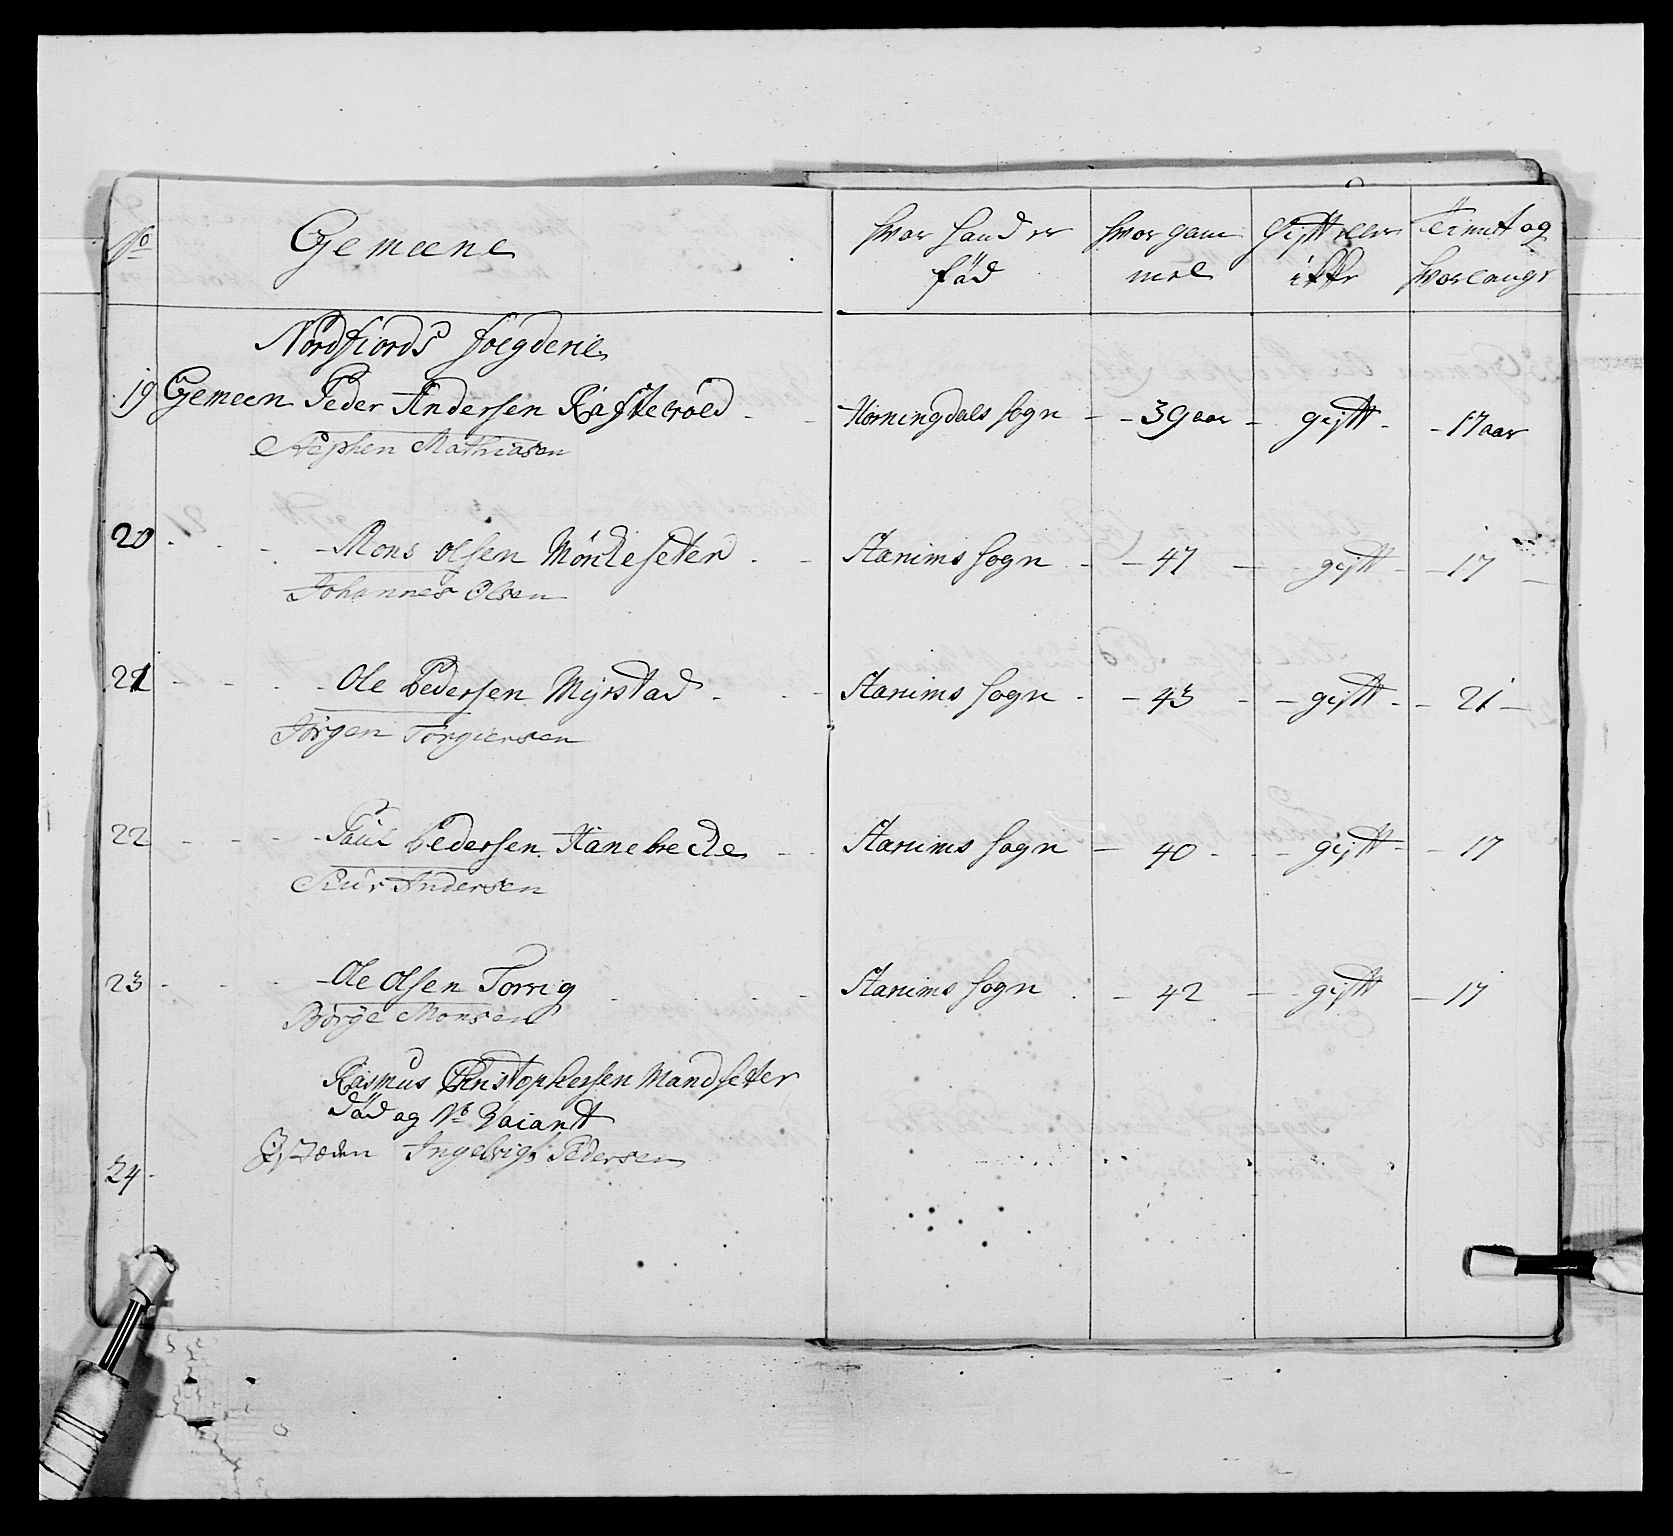 No Gemeene hvor hand er fød hvor gam mel Gift eller ikke Tient og hvor lenge
Nordfiords foegderie
19 Gemeen Peder Andersen Raftevold - Horningdals sogn - 39 aar - gift - 17 aar
Stephen Mathiasen
20 - Mons olsen - Starims sogn - 47 - gift - 17
Johannes Olsen
21 - Ole Pedersen Myrstad - Starims sogn - 43 - gift - 21
Jørgen Torgiersen
22 - Paul Pedersen - Starims sogn - 40 - gift - 17
Siur Andersen
23 - Ole olsen Torvig - Starims sogn - 42 - gift - 17
Børge Monsen
Rasmus Christophersen Mandseter
død og No Vaiandt
24 Ingebrigt Pedersen